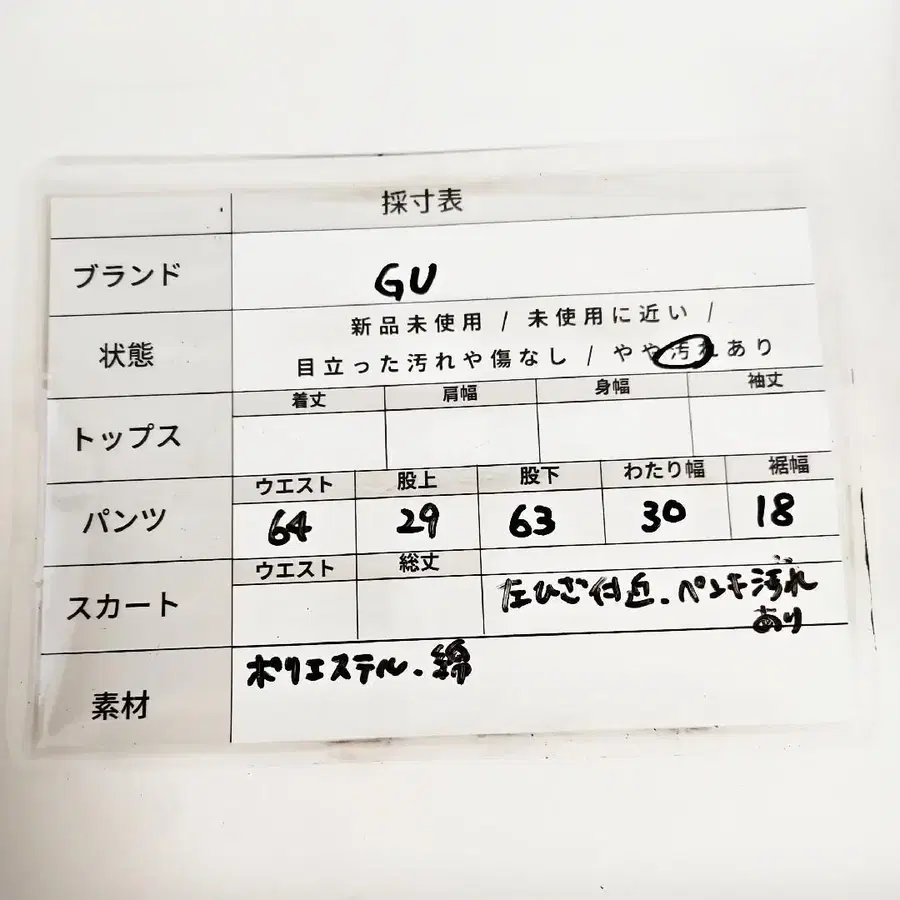 採寸表
ブランド GU
新品未使用 / 未使用に近い /
状態 目立った汚れや傷なし / やや汚れあり
着丈 肩幅 身幅 袖丈
トップス
ウエスト 股上 股下 わたり幅 裾幅
パンツ 64 29 63 30 18
ウエスト 総丈
スカート 左ひざ付近.ペンキ汚れ
あり
素材 ポリエステル.綿